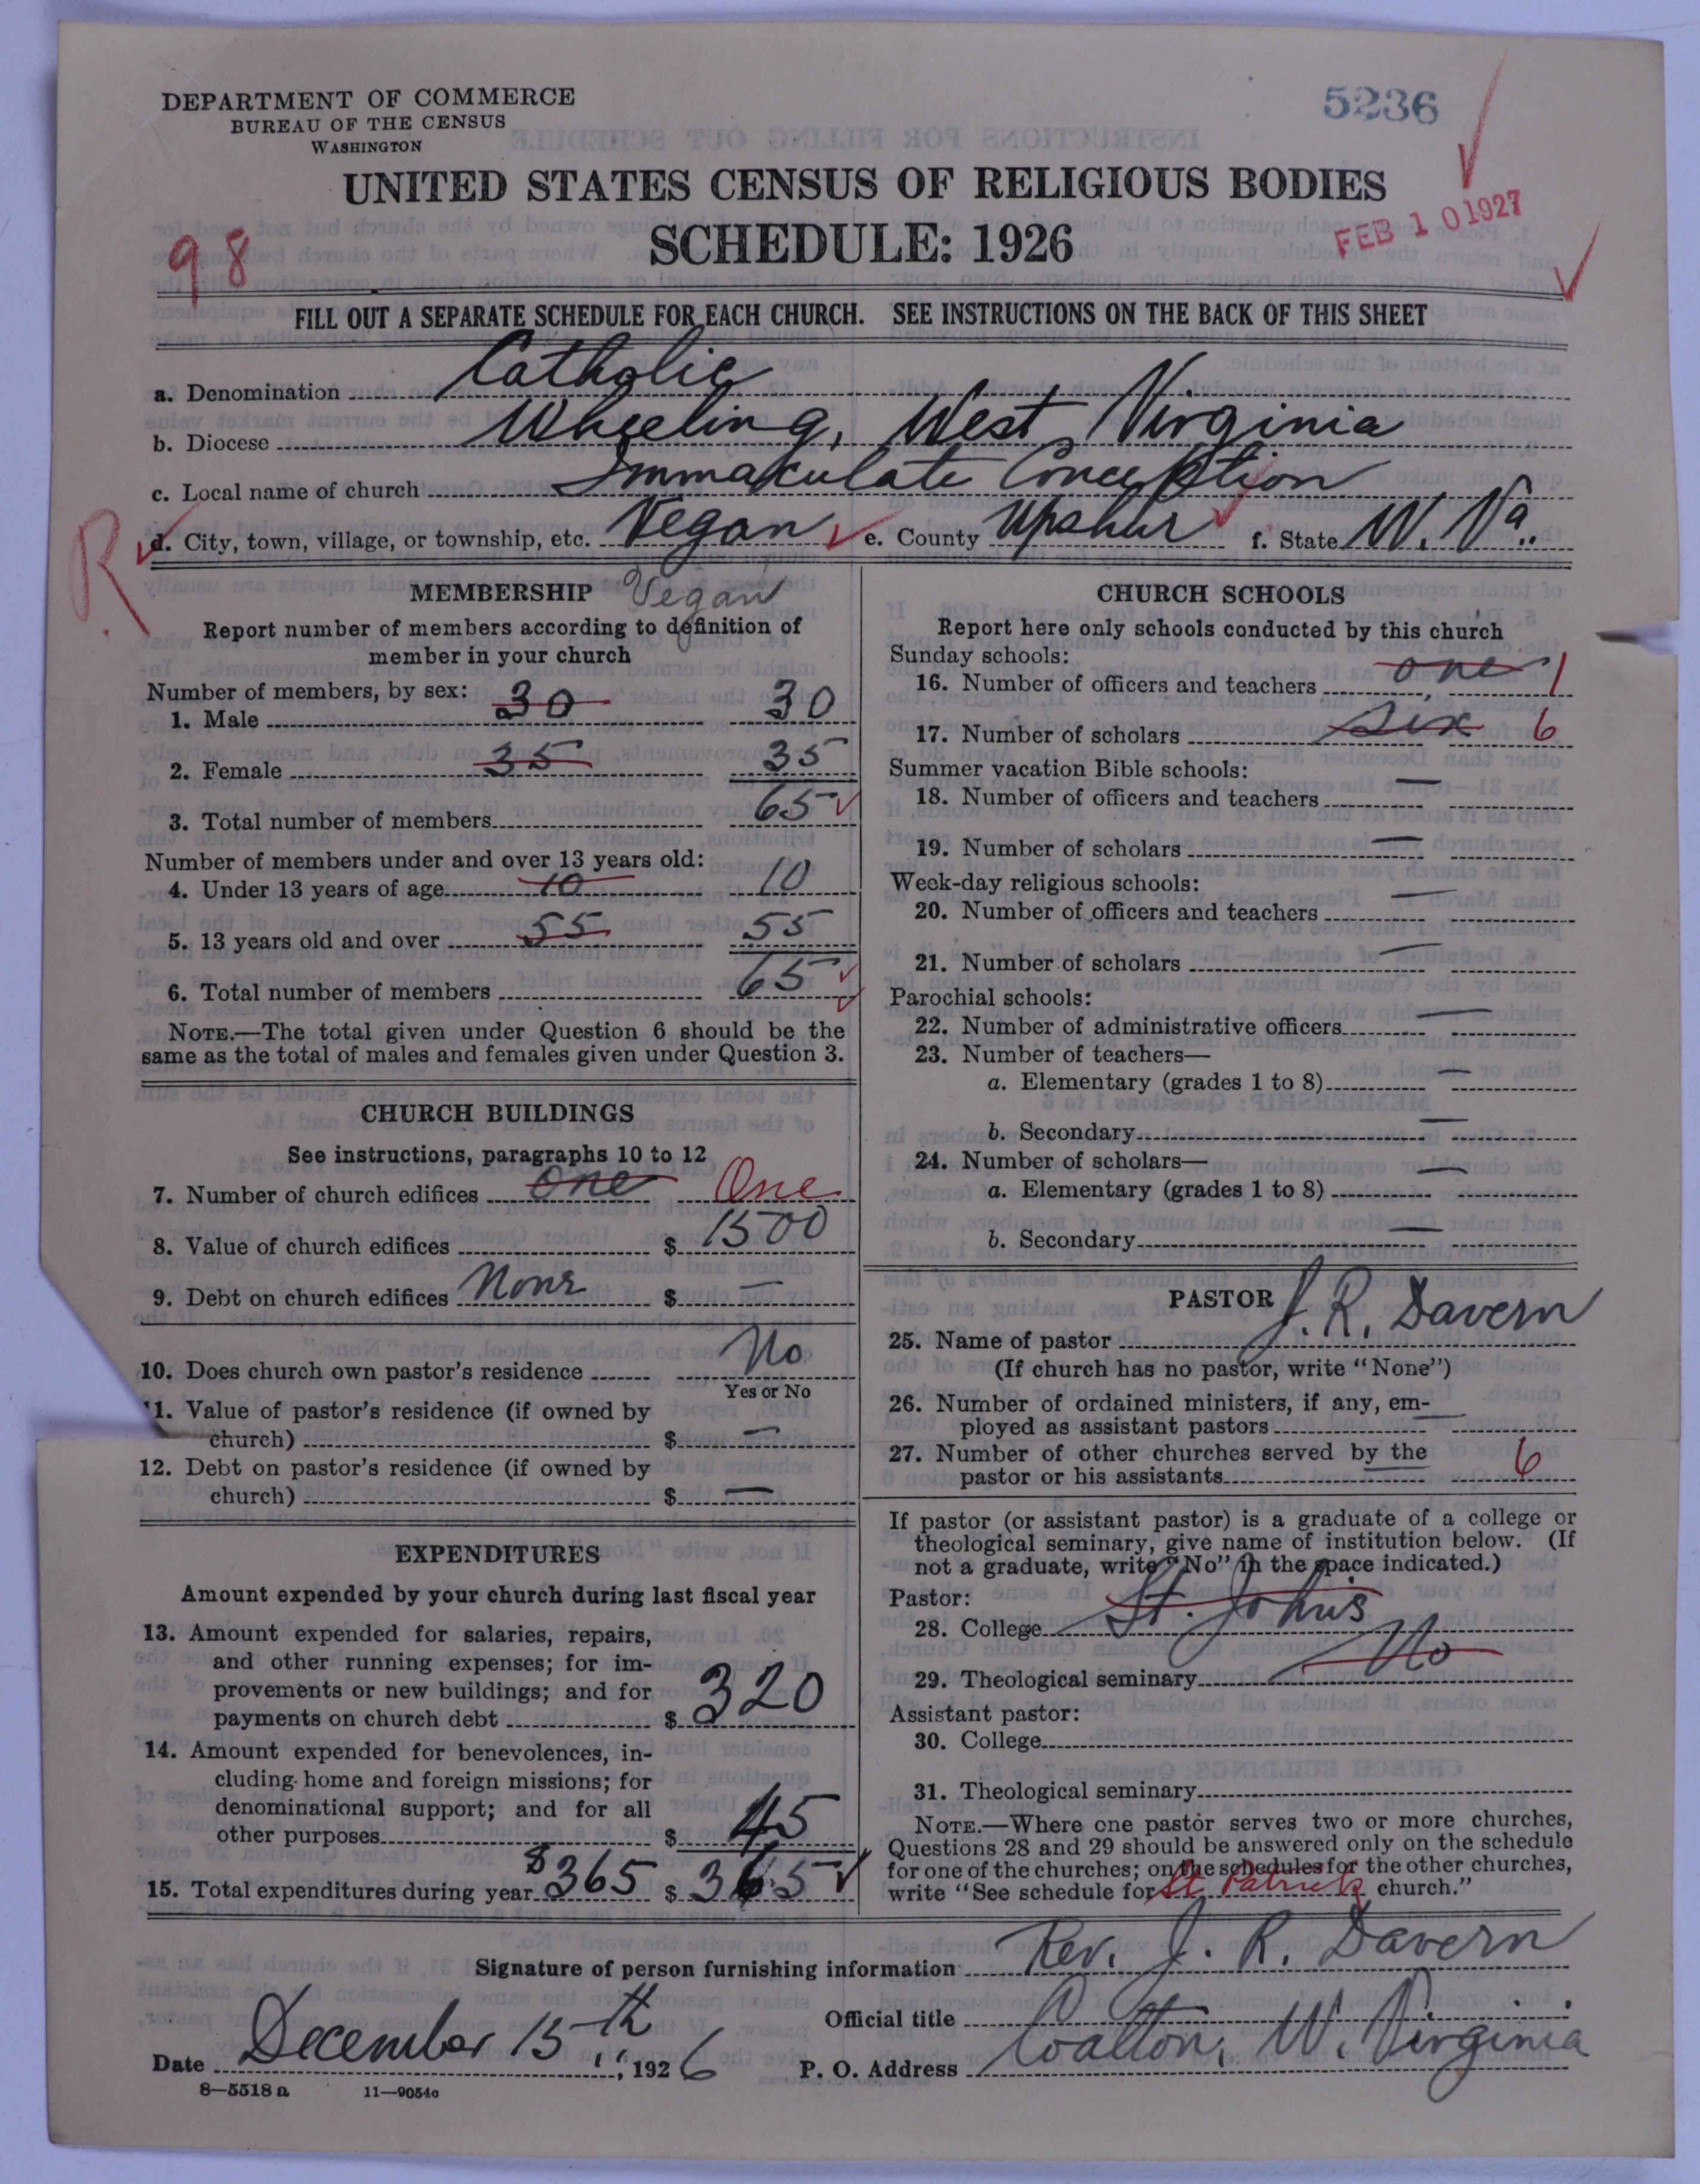 DEPARTMENT OF COMMERCE
BUREAU OF THE CENSUS
WASHINGTON
5236
UNITED STATES CENSUS OF RELIGIOUS BODIES
SCHEDULE: 1926
FEB 10 1927
98
FILL OUT A SEPARATE SCHEDULE FOR EACH CHURCH. SEE INSTRUCTIONS ON THE BACK OF THIS SHEET
a. Denomination Catholic
b. Diocese Wheeling, West Virginia
c. Local name of church Immaculate Conception
R. d. City, town, village, or township, etc. Vegan e. County Upshur f. State W. Va.
MEMBERSHIP Vegan
Report number of members according to definition of
member in your church
Number of members, by sex:
1. Male 30 30
2. Female 35 35
3. Total number of members 65
Number of members under and over 13 years old:
4. Under 13 years of age 10 10
5. 13 years old and over 55 55
6. Total number of members 65
NOTE.—The total given under Question 6 should be the
same as the total of males and females given under Question 3.
CHURCH BUILDINGS
See instructions, paragraphs 10 to 12
7. Number of church edifices one One
8. Value of church edifices $ 1500
9. Debt on church edifices None $ —
10. Does church own pastor's residence No
Yes or No
11. Value of pastor's residence (if owned by
church) $ —
12. Debt on pastor's residence (if owned by
church) $ —
EXPENDITURES
Amount expended by your church during last fiscal year
13. Amount expended for salaries, repairs,
and other running expenses; for im-
provements or new buildings; and for
payments on church debt $ 320
14. Amount expended for benevolences, in-
cluding home and foreign missions; for
denominational support; and for all
other purposes $ 45
15. Total expenditures during year $365 $ 365
CHURCH SCHOOLS
Report here only schools conducted by this church
Sunday schools:
16. Number of officers and teachers one 1
17. Number of scholars six 6
Summer vacation Bible schools:
18. Number of officers and teachers —
19. Number of scholars —
Week-day religious schools:
20. Number of officers and teachers —
21. Number of scholars —
Parochial schools:
22. Number of administrative officers —
23. Number of teachers—
a. Elementary (grades 1 to 8) —
b. Secondary —
24. Number of scholars—
a. Elementary (grades 1 to 8) —
b. Secondary —
PASTOR
25. Name of pastor J. R. Davern
(If church has no pastor, write "None")
26. Number of ordained ministers, if any, em-
ployed as assistant pastors —
27. Number of other churches served by the
pastor or his assistants — 6
If pastor (or assistant pastor) is a graduate of a college or
theological seminary, give name of institution below. (If
not a graduate, write "No" in the space indicated.)
Pastor:
28. College St. Johns
29. Theological seminary No
Assistant pastor:
30. College
31. Theological seminary
NOTE.—Where one pastor serves two or more churches,
Questions 28 and 29 should be answered only on the schedule
for one of the churches; on the schedules for the other churches,
write "See schedule for St. Patrick church."
Signature of person furnishing information Rev. J. R. Davern
Official title
Date December 15th, 1926 P. O. Address Coalton, W. Virginia
8—5518 a 11—9054c